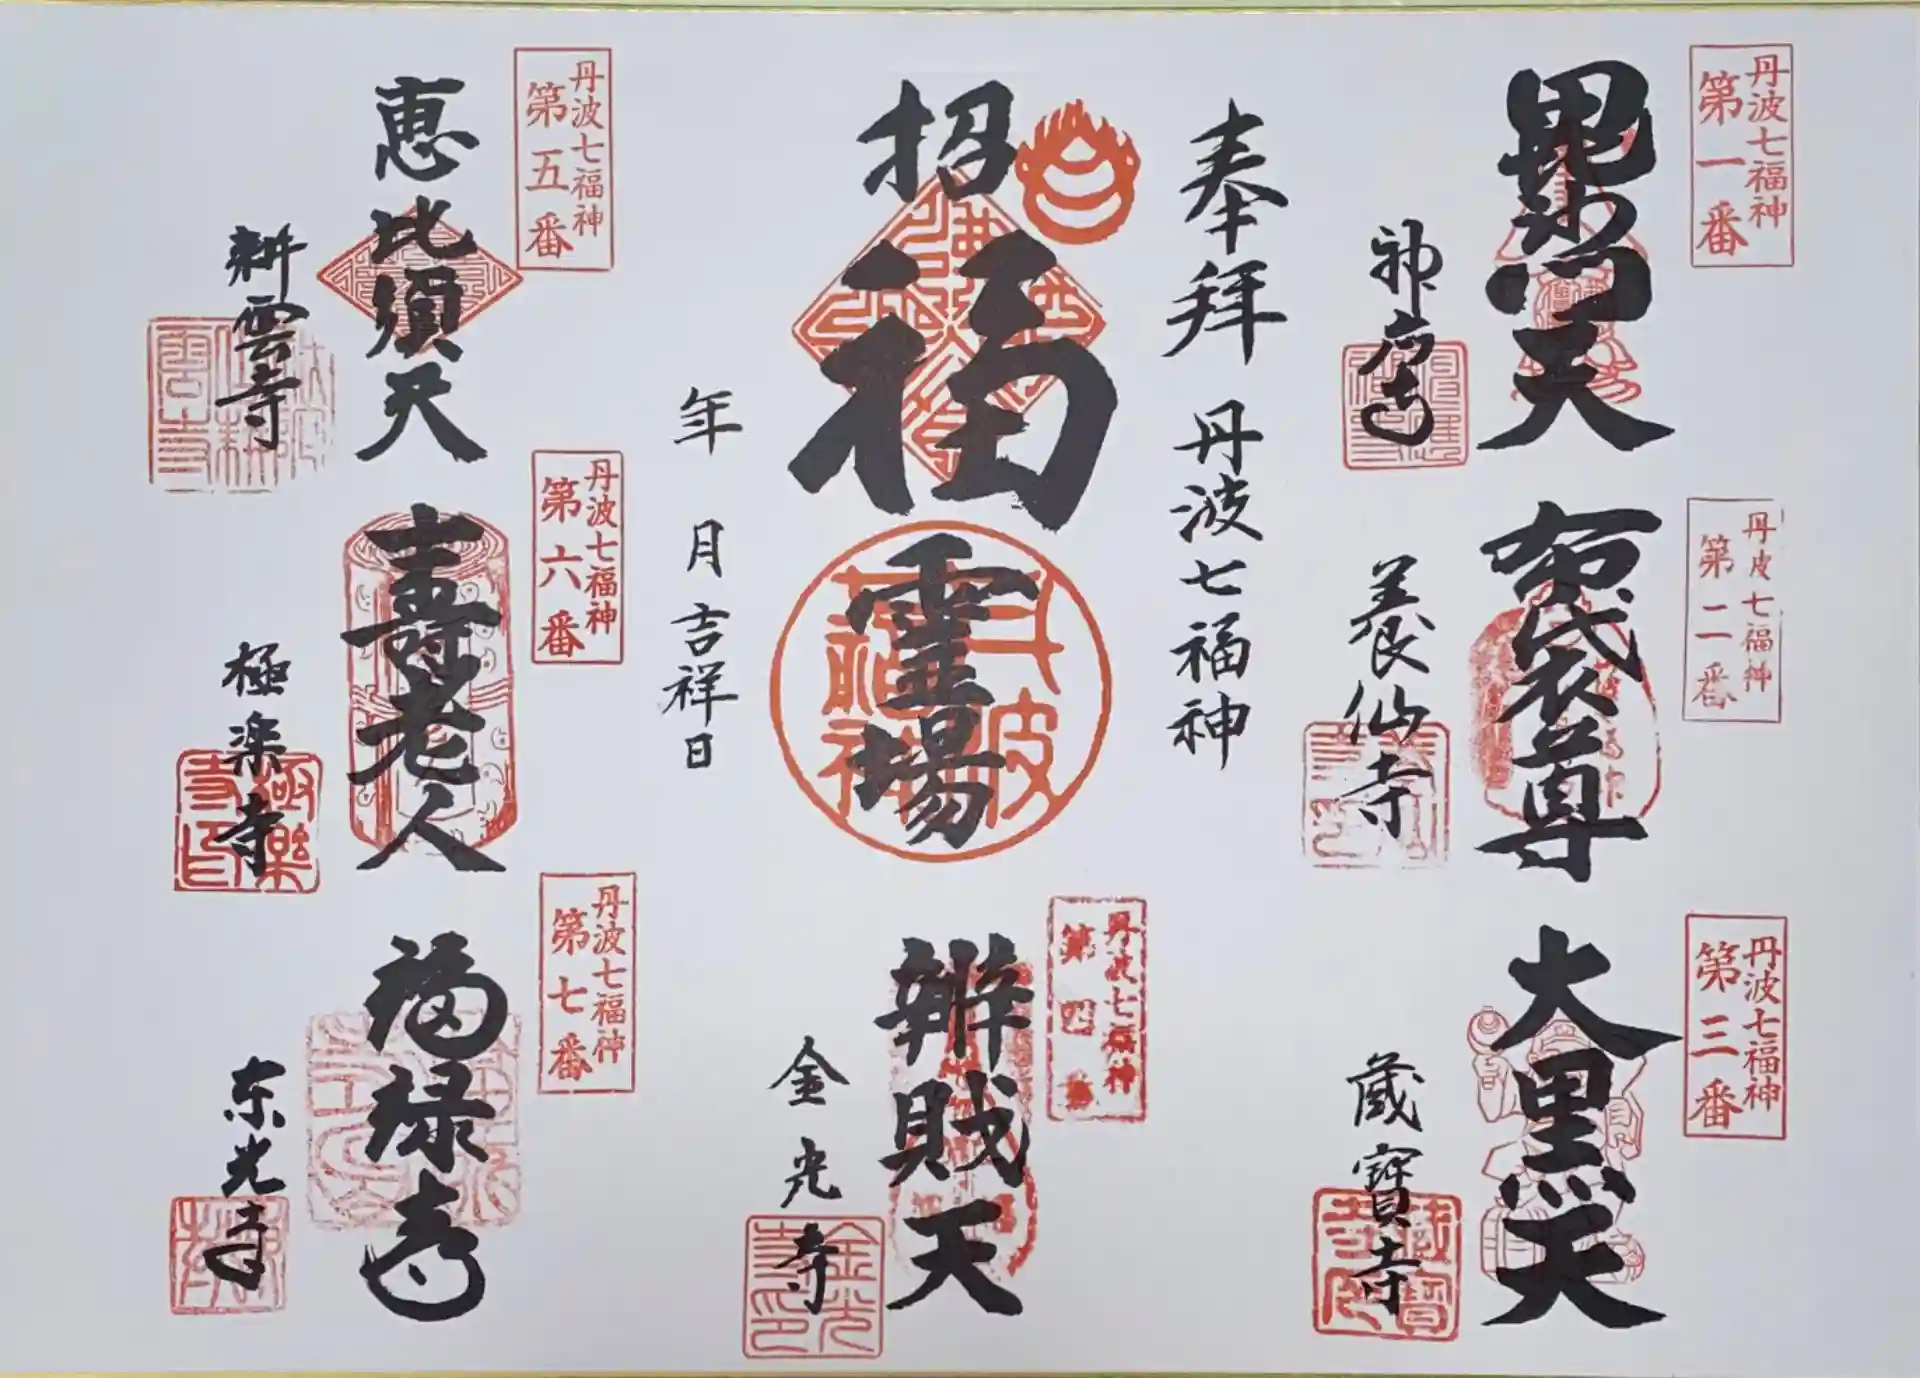 丹波七福神
第一番
毘沙門天
神応寺
丹波七福神
第二番
布袋尊
養仙寺
丹波七福神
第三番
大黒天
蔵寳寺
奉拝 丹波七福神
招福
霊場
年 月吉祥日
丹波七福神
第四番
辨財天
金光寺
丹波七福神
第五番
恵比須天
耕雲寺
丹波七福神
第六番
寿老人
極楽寺
極楽寺印
丹波七福神
第七番
福禄寿
东光寺